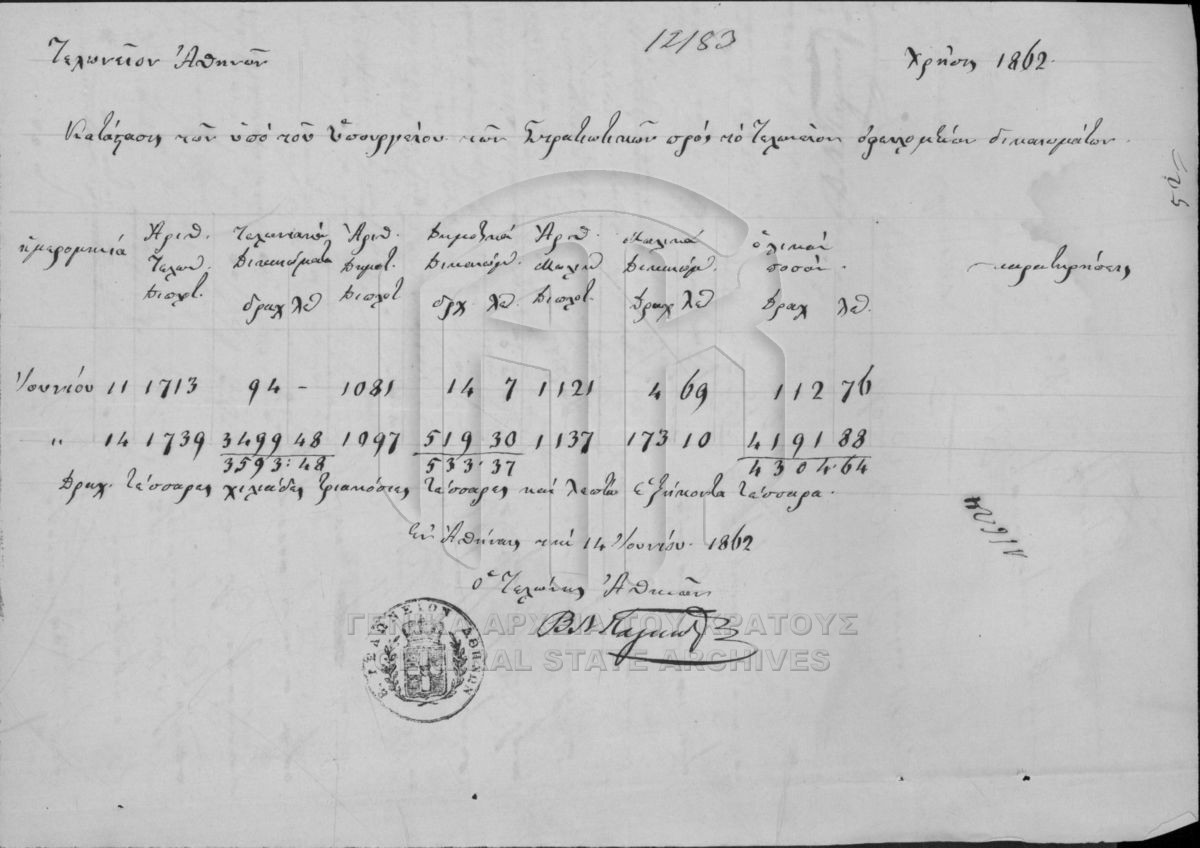 Τελωνεῖον Ἀθηνῶν
12183
Χρῆσις 1862.
Κατάστασις τῶν ὑπὸ τοῦ Ὑπουργείου τῶν Στρατιωτικῶν πρὸς τὸ Τελωνεῖον ὀφειλομένων δικαιωμάτων.
52
ἡμερομηνία Ἀριθ. Τελωνιακά Ἀριθ. Δημοτικά Ἀριθ. ὁλικόν
Τελων. Δικαιώματα Δημοτ. Δικαιώμ. Δικαιώμ. ποσόν. παρατηρήσεις
Διπλοτ. δραχ λεπ Διπλοτ δρχ. λεπ. Διπλοτ. Δραχ λεπ Δραχ λεπ.
Ἰουνίου 11 1713 94 - 1081 14 7 1121 4 69 112 76
" 14 1739 3499 48 1097 519 30 1137 173 10 4191 88
3593:48 533:37 4304.64
Δραχ. τέσσαρες χιλιάδες τριακόσιες τέσσαρες καὶ λεπτὰ ἑξήκοντα τέσσαρα.
Ἐν Ἀθήναις τῇ 14 Ἰουνίου 1862
Ὁ Τελώνης Ἀθηνῶν
Β. ΤΕΛΩΝΕΙΟΝ ΑΘΗΝΩΝ
ΓΕΝΙΚΑ ΑΡΧΕΙΑ ΤΟΥ ΚΡΑΤΟΥΣ
GENERAL STATE ARCHIVES